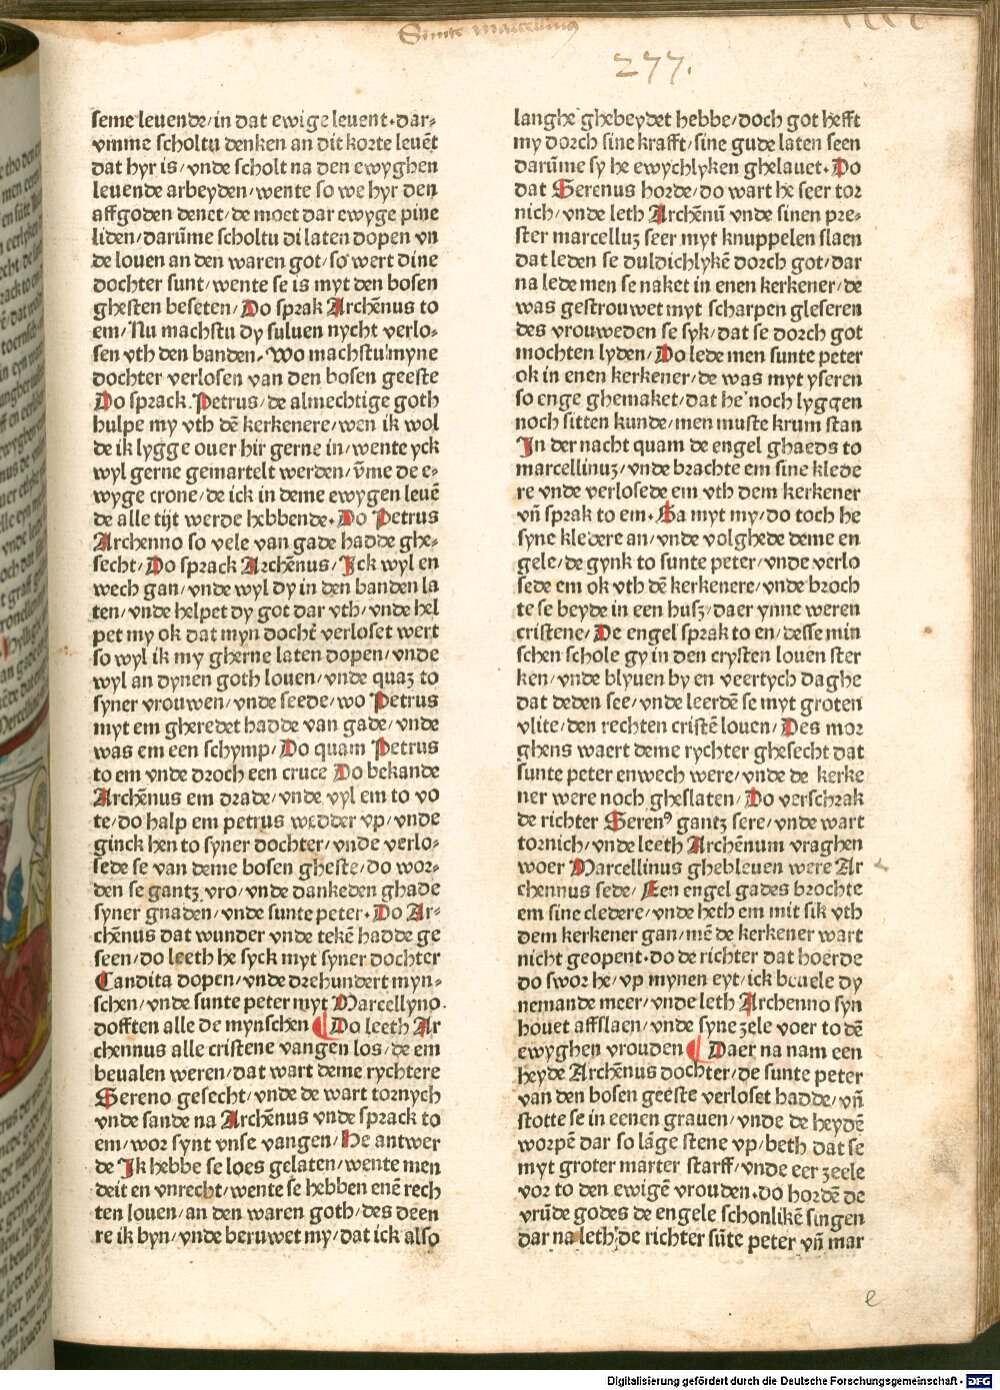 Sunte Marcellinus
277.
seme leuende/in dat ewige leuent.dar⸗
vmme scholtu denken an dit korte leuēt
dat hyr is/vnde scholt na den ewyghen
leuende arbeyden/wente so we hyr den
affgoden denet/de moet dar ewyge pine
liden/darūme scholtu di laten dopen vn
de louen an den waren got/so wert dine
dochter sunt/wente se is myt den bosen
ghesten beseten/Do sprak Archēnus to
em/Nu machstu dy suluen nycht verlo⸗
sen vth den banden.Wo machstu myne
dochter verlosen van den bosen geeste
Do sprack.Petrus/de almechtige goth
hulpe my vth dē kerkenere/wen ik wol
de ik lygge ouer hir gerne in/wente yck
wyl gerne gemartelt werden/v̄me de e⸗
wyge crone/de ick in deme ewygen leuē
de alle tijt werde hebbende.Do Petrus
Archenno so vele van gade hadde ghe⸗
secht/Do sprack Archēnus/Jck wyl en
wech gan/vnde wyl dy in den banden la
ten/vnde helpet dy got dar vth/vnde hel
pet my ok dat myn docht̄ verloset wert
so wyl ik my gherne laten dopen/vnde
wyl an dynen goth louen/vnde quaʒ to
syner vrouwen/vnde seede/wo Petrus
myt em gheredet hadde van gade/vnde
was em een schymp/Do quam Petrus
to em vnde droch een cruce Do bekande
Archēnus em drade/vnde vyl em to vo
te/do halp em petrus wedder vp/vnde
ginck hen to syner dochter/vnde verlo⸗
sede se van deme bosen gheste/do wor⸗
den se gantz vro/vnde dankeden ghade
syner gnaden/vnde sunte peter.Do Ar⸗
chēnus dat wunder vnde tekē hadde ge
seen/do leeth he syck myt syner dochter
Candita dopen/vnde drehundert myn⸗
schen/vnde sunte peter myt Marcellyno.
dofften alle de mynschen ¶Do leeth Ar
chennus alle cristene vangen los/de em
beualen weren/dat wart deme rychtere
Sereno gesecht/vnde de wart tornych
vnde sande na Archēnus vnde sprack to
em/wor synt vnse vangen/He antwer
de Jk hebbe se loes gelaten/wente men
deit en vnrecht/wente se hebben enē rech
ten louen/an den waren goth/des deen
re ik byn/vnde beruwet my/dat ick also
langhe ghebeydet hebbe/doch got hefft
my dorch sine krafft/sine gude laten seen
darūme sy he ewychlyken ghelauet.Do
dat Serenus horde/do wart he seer tor
nich/vnde leth Archēnū vnde sinen pre⸗
ster marcelluʒ seer myt knuppelen slaen
dat leden se duldichlykē dorch got/dar
na lede men se naket in enen kerkener/de
was gestrouwet myt scharpen gleseren
des vrouweden se syk/dat se dorch got
mochten lyden/Do lede men sunte peter
ok in enen kerkener/de was myt yseren
so enge ghemaket/dat he noch lyggen
noch sitten kunde/men muste krum stan
Jn der nacht quam de engel ghaeds to
marcellinuʒ/vnde brachte em sine klede
re vnde verlosede em vth dem kerkener
vn̄ sprak to em.Ga myt my/do toch he
syne kledere an/vnde volghede deme en
gele/de gynk to sunte peter/vnde verlo
sede em ok vth dē kerkenere/vnde broch
te se beyde in een husʒ/daer ynne weren
cristene/De engel sprak to en/desse min
schen schole gy in den crysten louen ster
ken/vnde blyuen by en veertych daghe
dat deden see/vnde leerdē se myt groten
vlite/den rechten cristē louen/Des mor
ghens waert deme rychter ghesecht dat
sunte peter enwech were/vnde de kerke
ner were noch gheslaten/Do verschrak
de richter Serenꝰ gantz sere/vnde wart
tornich/vnde leeth Archēnum vraghen
woer Marcellinus ghebleuen were Ar
chennus sede/Een engel gades brochte
em sine cledere/vnde heth em mit sik vth
dem kerkener gan/mē de kerkener wart
nicht geopent.do de richter dat hoerde
do swor he/vp mynen eyt/ick beuele dy
nemande meer/vnde leth Archenno syn
houet affslaen/vnde syne zele voer to dē
ewyghen vrouden ¶Daer na nam een
heyde Archēnus dochter/de sunte peter
van den bosen geeste verloset hadde/vn̄
stotte se in eenen grauen/vnde de heydē
worpē dar so lāge stene vp/beth dat se
myt groter marter starff/vnde eer zeele
vor to den ewigē vrouden.do hordē de
vrūde godes de engele schonlikē singen
dar na leth de richter sūte peter vn̄ mar
e
Digitalisierung gefördert durch die Deutsche Forschungsgemeinschaft - DFG